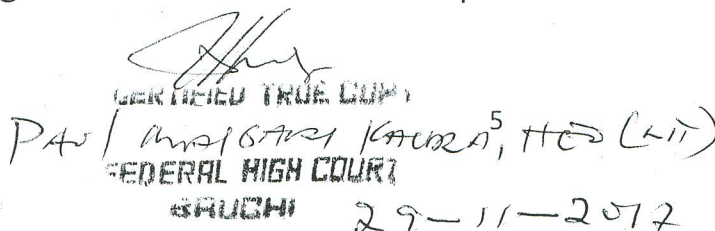 CERTIFIED TRUE COPY
5
PAUL KAURA, HEO (LIT)
FEDERAL HIGH COURT
BAUCHI 29-11-2017